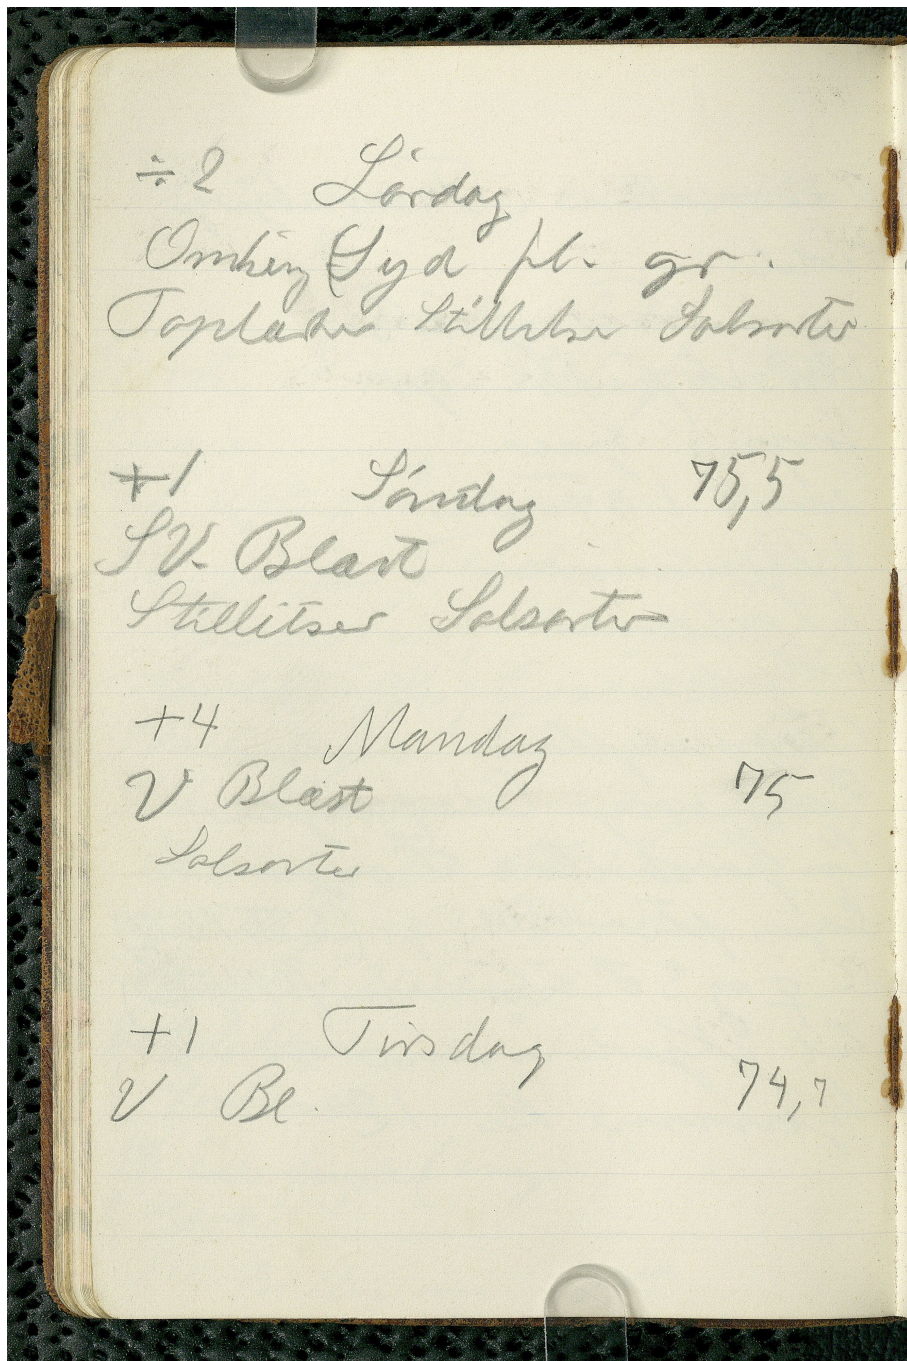 ÷2 Lørdag
Omkring Syd fl. gr.
Toplærker Stillitser Solsorter
+1 Søndag 75,5
SV. Blæst
Stillitser Solsorter
+4 Mandag
V Blæst 75
Solsorter
+1 Tirsdag
V Bl. 74,7